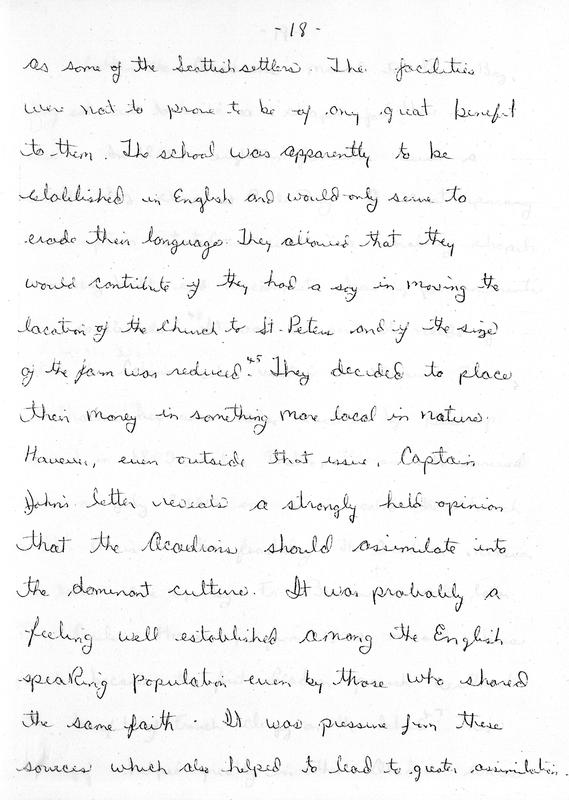 -18-
as some of the Scottish settlers. The facilities
were not to prove to be of any great benefit
to them. The school was apparently to be
established in English and would only serve to
erode their language. They allowed that they
would contribute if they had a say in moving the
location of the Church to St. Peters and if the size
of the farm was reduced.45 They decided to place
their money in something more local in nature.
However, even outside that issue, Captain
John's letter reveals a strongly held opinion
that the Acadians should assimilate into
the dominant culture. It was probably a
feeling well established among the English
speaking population even by those who shared
the same faith. It was pressure from these
sources which also helped to lead to greater assimilation.